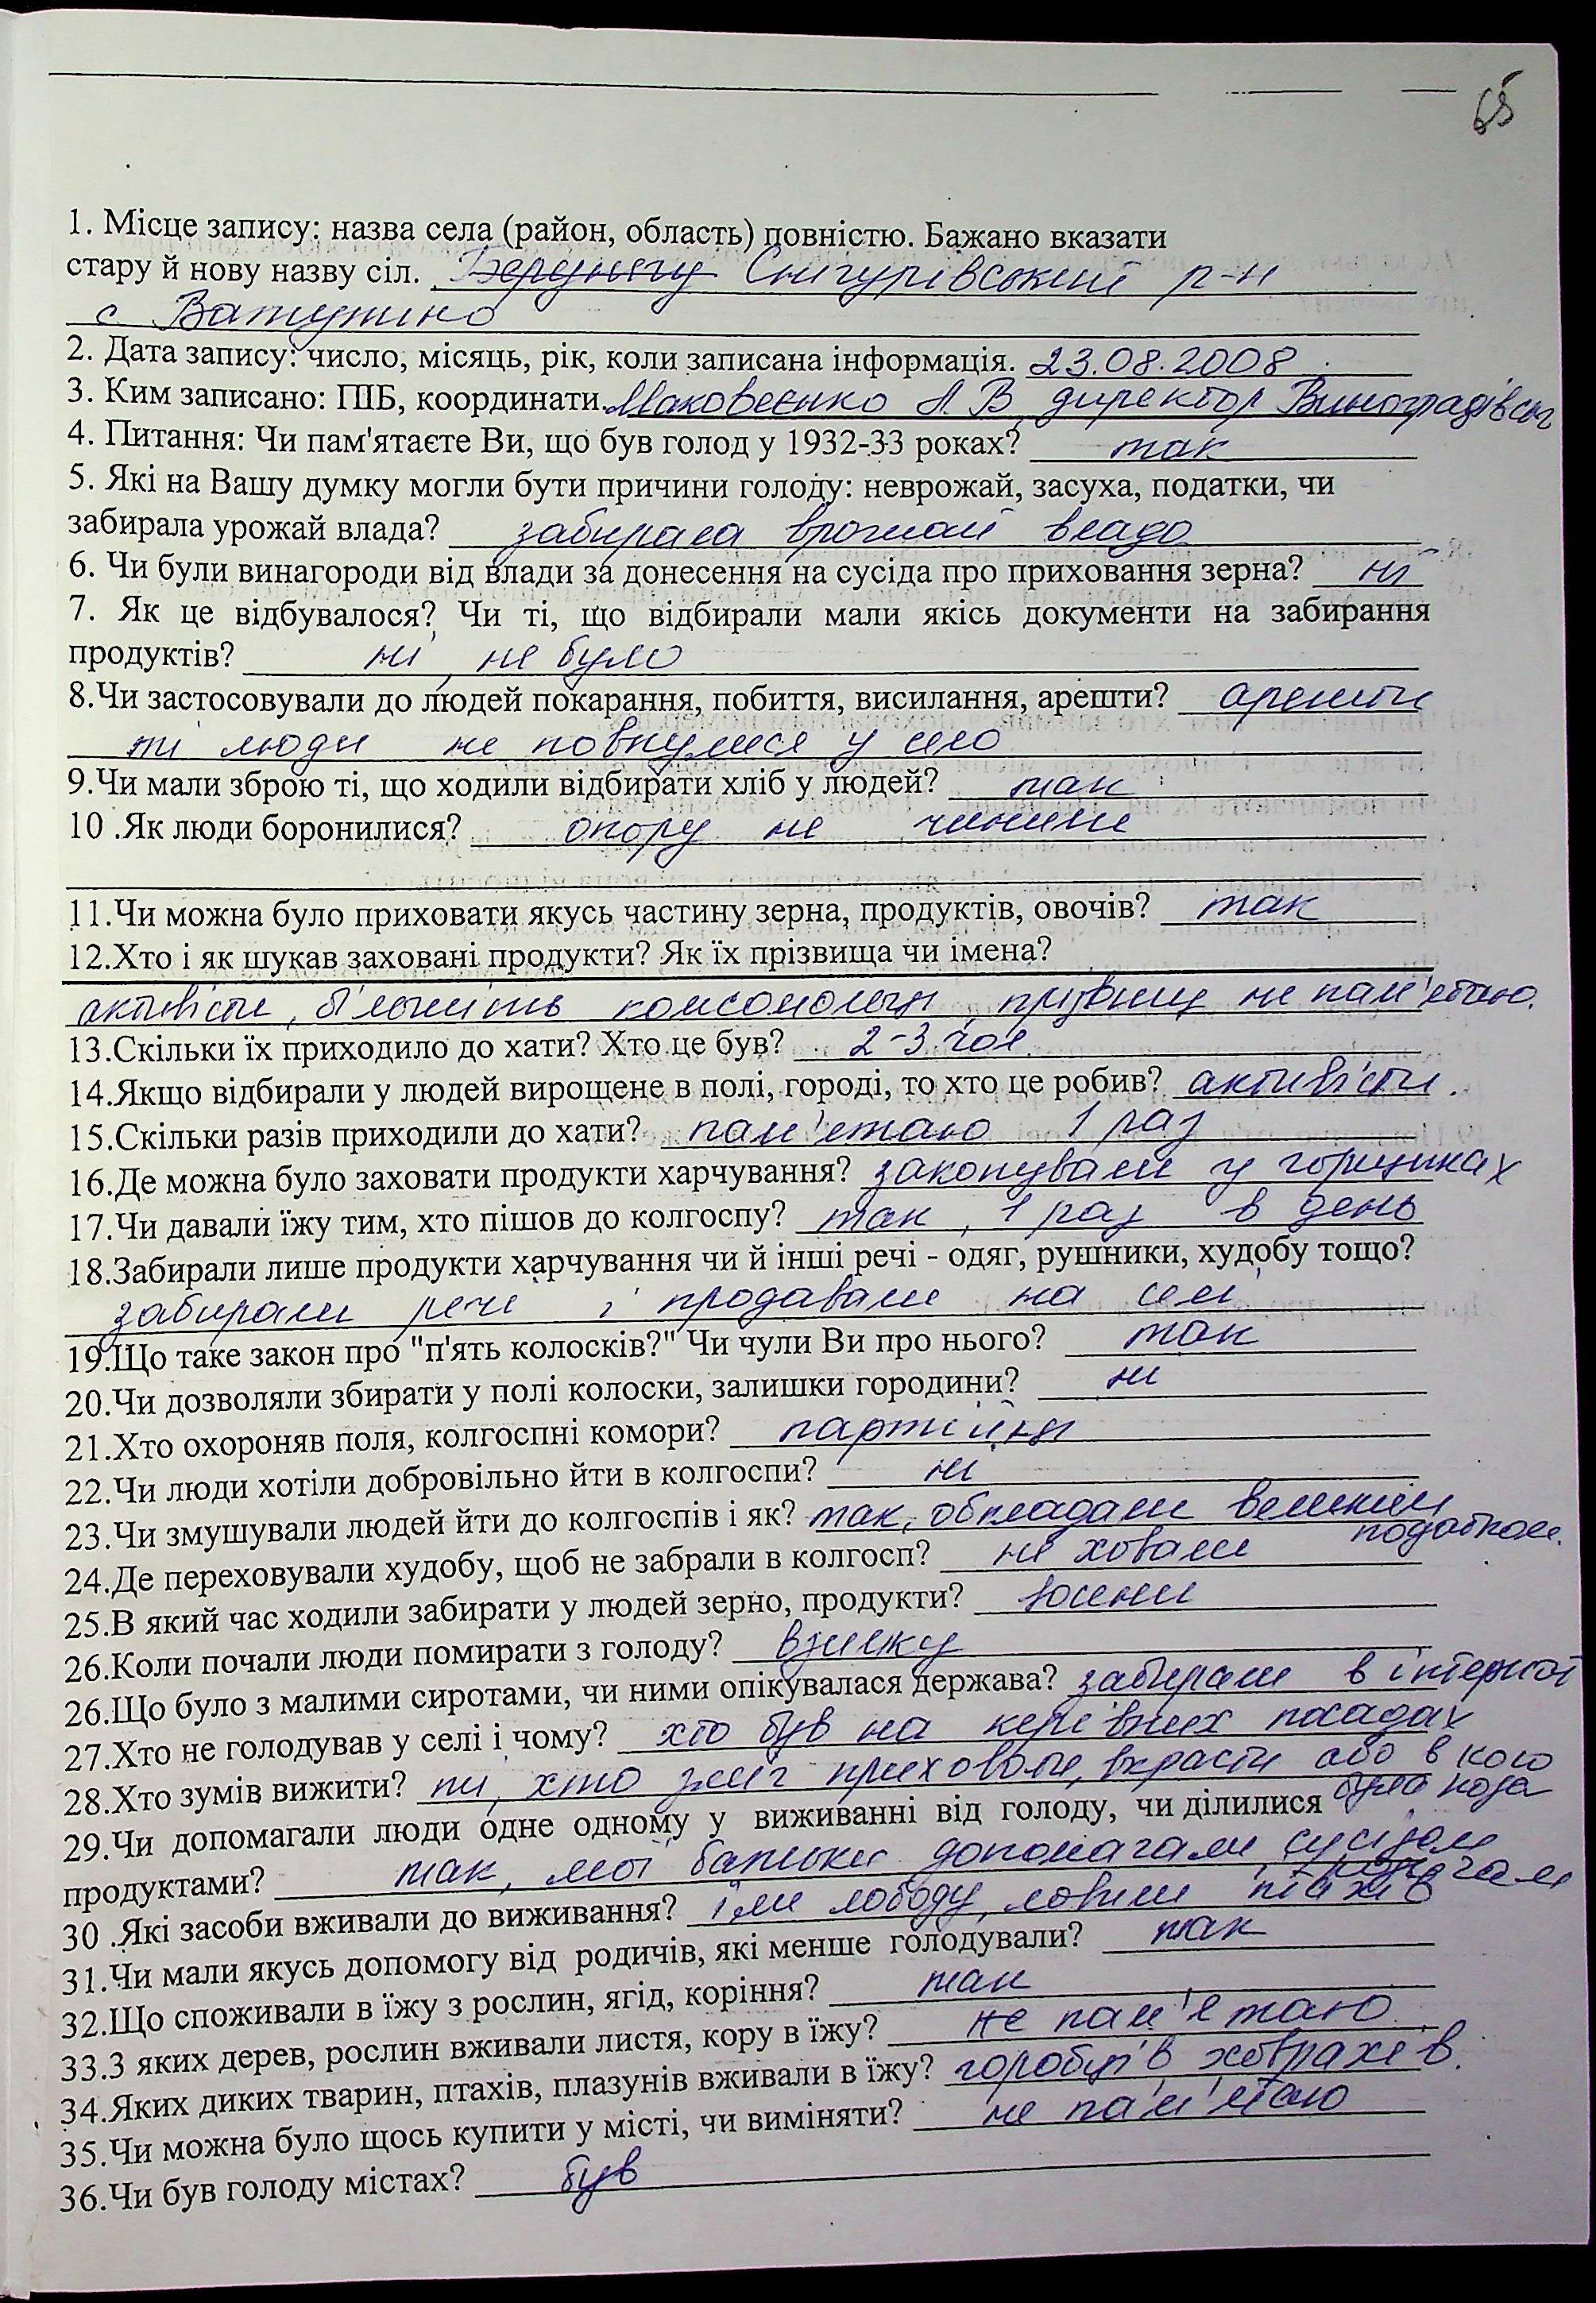 65
1. Місце запису: назва села (район, область) повністю. Бажано вказати
стару й нову назву сіл. Снигурівський р-н
с Ватутино
2. Дата запису: число, місяць, рік, коли записана інформація. 23.08.2008
3. Ким записано: ПІБ, координати. Маковеєнко А. В, директор Виноградівськ
4. Питання: Чи пам'ятаєте Ви, що був голод у 1932-33 роках? так
5. Які на Вашу думку могли бути причини голоду: неврожай, засуха, податки, чи
забирала урожай влада? забирала врожай влада
6. Чи були винагороди від влади за донесення на сусіда про приховання зерна? ні
7. Як це відбувалося? Чи ті, що відбирали мали якісь документи на забирання
продуктів? ні, не було
8.Чи застосовували до людей покарання, побиття, висилання, арешти? арешти
ті люди не повнулися у село
9.Чи мали зброю ті, що ходили відбирати хліб у людей? так
10 .Як люди боронилися? опору не чинили
11.Чи можна було приховати якусь частину зерна, продуктів, овочів? так
12.Хто і як шукав заховані продукти? Як їх прізвища чи імена?
активісти, більшість комсомольці, прізвищ не пам'ятаю.
13.Скільки їх приходило до хати? Хто це був? 2-3 чол
14.Якщо відбирали у людей вирощене в полі, городі, то хто це робив? активісти.
15.Скільки разів приходили до хати? пам'ятаю 1 раз
16.Де можна було заховати продукти харчування? закопували у горщиках
17.Чи давали їжу тим, хто пішов до колгоспу? так, 1 раз в день
18.Забирали лише продукти харчування чи й інші речі - одяг, рушники, худобу тощо?
забирали речі і продавали на селі
19.Що таке закон про "п'ять колосків?" Чи чули Ви про нього? так
20.Чи дозволяли збирати у полі колоски, залишки городини? ні
21.Хто охороняв поля, колгоспні комори? партійці
22.Чи люди хотіли добровільно йти в колгоспи? ні
23.Чи змушували людей йти до колгоспів і як? так, обкладали великим
податком.
24.Де переховували худобу, щоб не забрали в колгосп? не ховали
25.В який час ходили забирати у людей зерно, продукти? восени
26.Коли почали люди помирати з голоду? взимку
26.Що було з малими сиротами, чи ними опікувалася держава? забирали в інтернат
27.Хто не голодував у селі і чому? хто був на керівних посадах
28.Хто зумів вижити? ті, хто зміг приховати, вкрасти або в кого
була коза
29.Чи допомагали люди одне одному у виживанні від голоду, чи ділилися
продуктами? так, мої батьки допомагали сусідам
30 .Які засоби вживали до виживання? їли лободу, ловили птахів
31.Чи мали якусь допомогу від родичів, які менше голодували? так
32.Що споживали в їжу з рослин, ягід, коріння? так
33.З яких дерев, рослин вживали листя, кору в їжу? не пам'ятаю
34.Яких диких тварин, птахів, плазунів вживали в їжу? горобців, ховрахів.
35.Чи можна було щось купити у місті, чи виміняти? не пам'ятаю
36.Чи був голоду містах? був